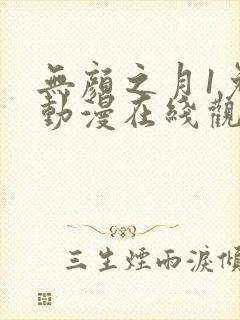 無顏之月1
動漫在綫觀
三生煙雨淚傾